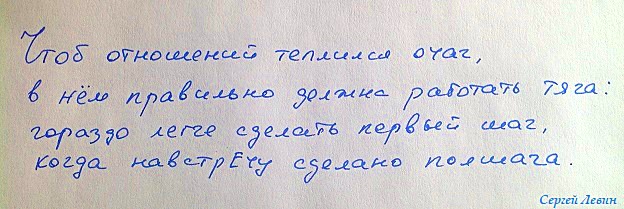 Чтоб отношений теплился очаг,
в нём правильно должна работать тяга:
гораздо легче сделать первый шаг,
когда навстрЕчу сделано полшага.
Сергей Левин